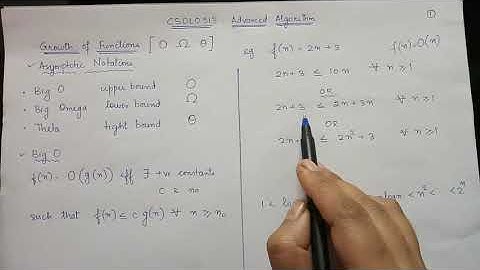 CSDLO5011 Advanced Algorithm
①
Growth of Functions [O Ω θ]
✓ Asymptotic Notations
• Big O upper bound O
• Big Omega lower bound Ω
• Theta tight bound θ
✓ Big O
f(n) = O(g(n)) iff ∃ +ve constants
C & n₀
such that f(n) ≤ c g(n) ∀ n ≥ n₀
eg f(n) = 2n + 3 f(n) = O(n)
2n+3 ≤ 10n ∀ n ≥ 1
OR
2n+3 ≤ 2n+3n ∀ n ≥ 1
OR
2n+ ≤ 2n²+3 ∀ n ≥ 1
1 < lo
logn < n² < < 2ⁿ